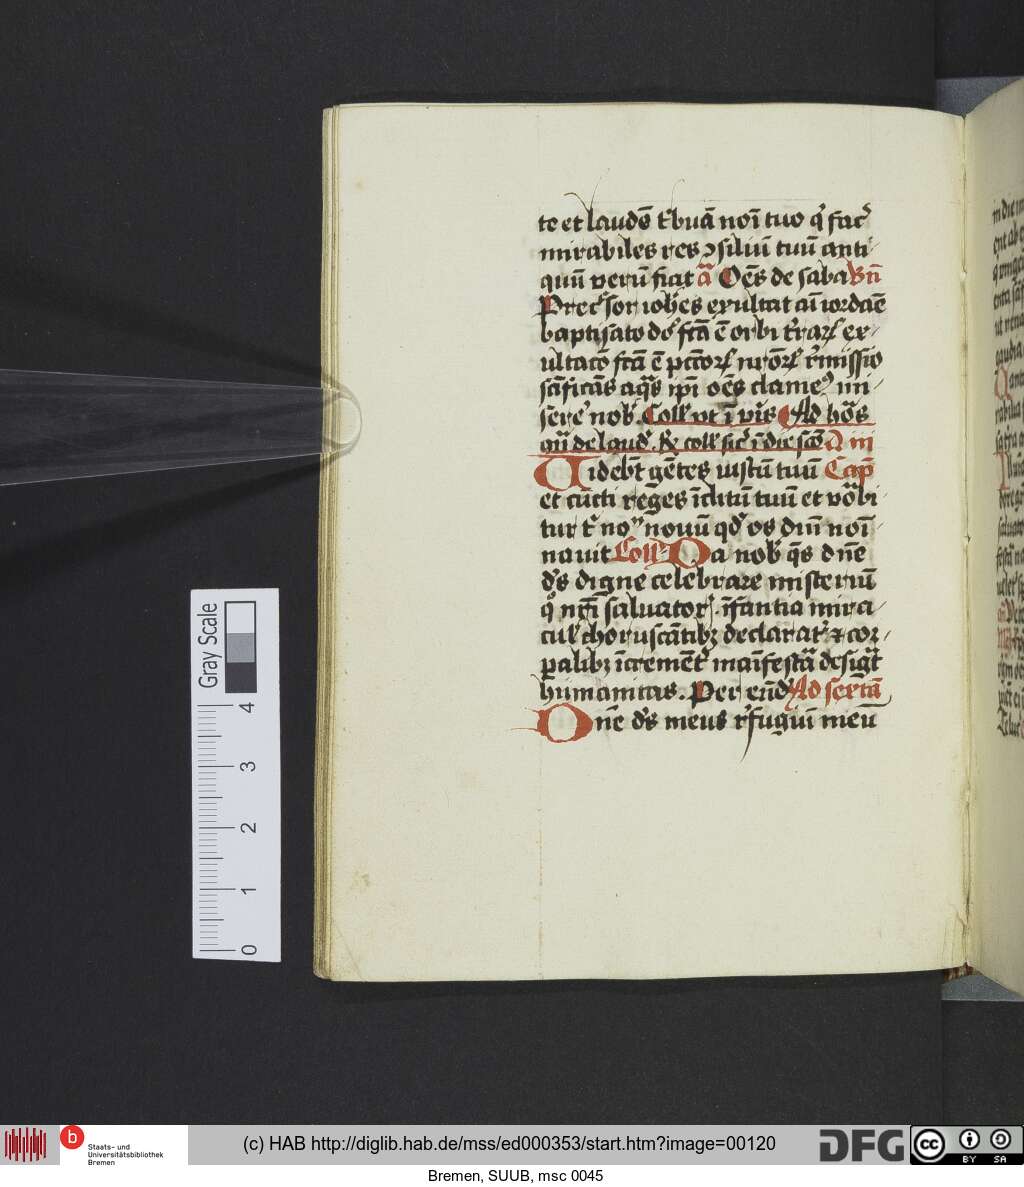 te et laudē t͛buā noı̄ tuo q̄ fac͛
mirabiles res ꝯsiliū tuū anti
quū verū fiat ā Oēs de saba Bn̄
Prec͛sor ioh̄es exultat cū iordāe
baptisato dō fc̄a ē orbi t͛rarꝝ ex
ultacō fc̄a ē pctōrꝝ nrōrꝝ r͛missio
sāficās aq̄s ip̄i oēs clamem9 mi
sere͛ nob͛ Coll͛ vt ī v̄is Ad hōs
qn̄ de laud͛. & coll͛ sic͛ ī die scō A iii
Uidebt̄ gētes iustū tuū Cap̄
et cūcti reges īclitū tuū et vōbi
tur t͛ no nouū qd̓ os dn̄i noı̄
nauit Coll͛ Da nob͛ q̄s dn̄e
d͛s digne celebrare misteriū
q̄ nr̄i saluatorꝭ . īfantia mira
cul͛ choruscātibꝫ declarat͛ & cor
palibꝫ īcremēt͛ maīfestā desigt̄
humanitas. Per eūd͛ Ad sextā
One d͛s meus r͛fugiū meū
Gray Scale
4
3
2
1
0
b
Staats- und
Universitätsbibliothek
Bremen
(c) HAB http://diglib.hab.de/mss/ed000353/start.htm?image=00120
DFG
cc
BY SA
Bremen, SUUB, msc 0045